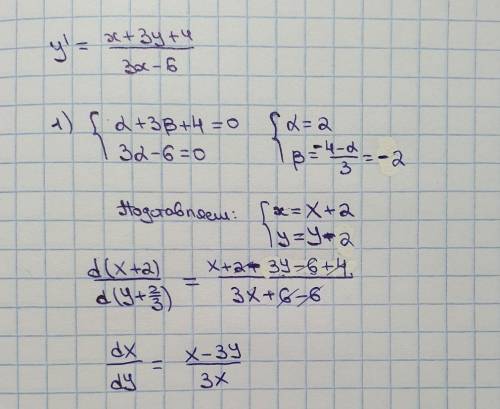 y' = (x+3y+4)/(3x-6)
1) { α+3β+4=0 { α=2
3α-6=0 β=(-4-α)/3=-2
Подставляем: { x=X+2
y=Y-2
d(X+2)/d(Y+2/3) = (X+2-3Y-6+4)/(3X+6-6)
dX/dY = (X-3Y)/(3X)